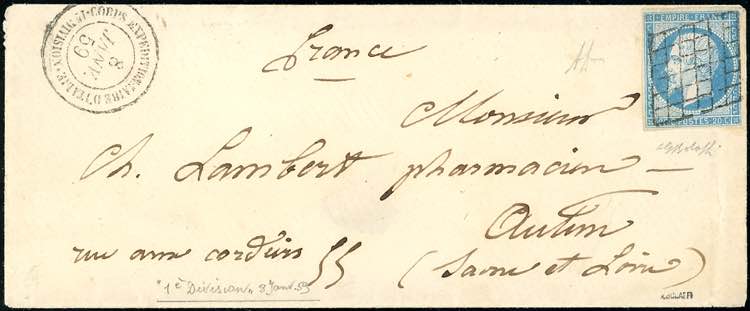 CORPS EXPEDITIONNAIRE D'ITALIE · 1E DIVISION
8
JANV.
59
EMPIRE FRANC
POSTES 20 C
France
Monsieur
Ch. Lambert pharmacien
Autun
rue aux cordiers 55 (Saone et Loire)
"1e Division" 8 Janv. 59